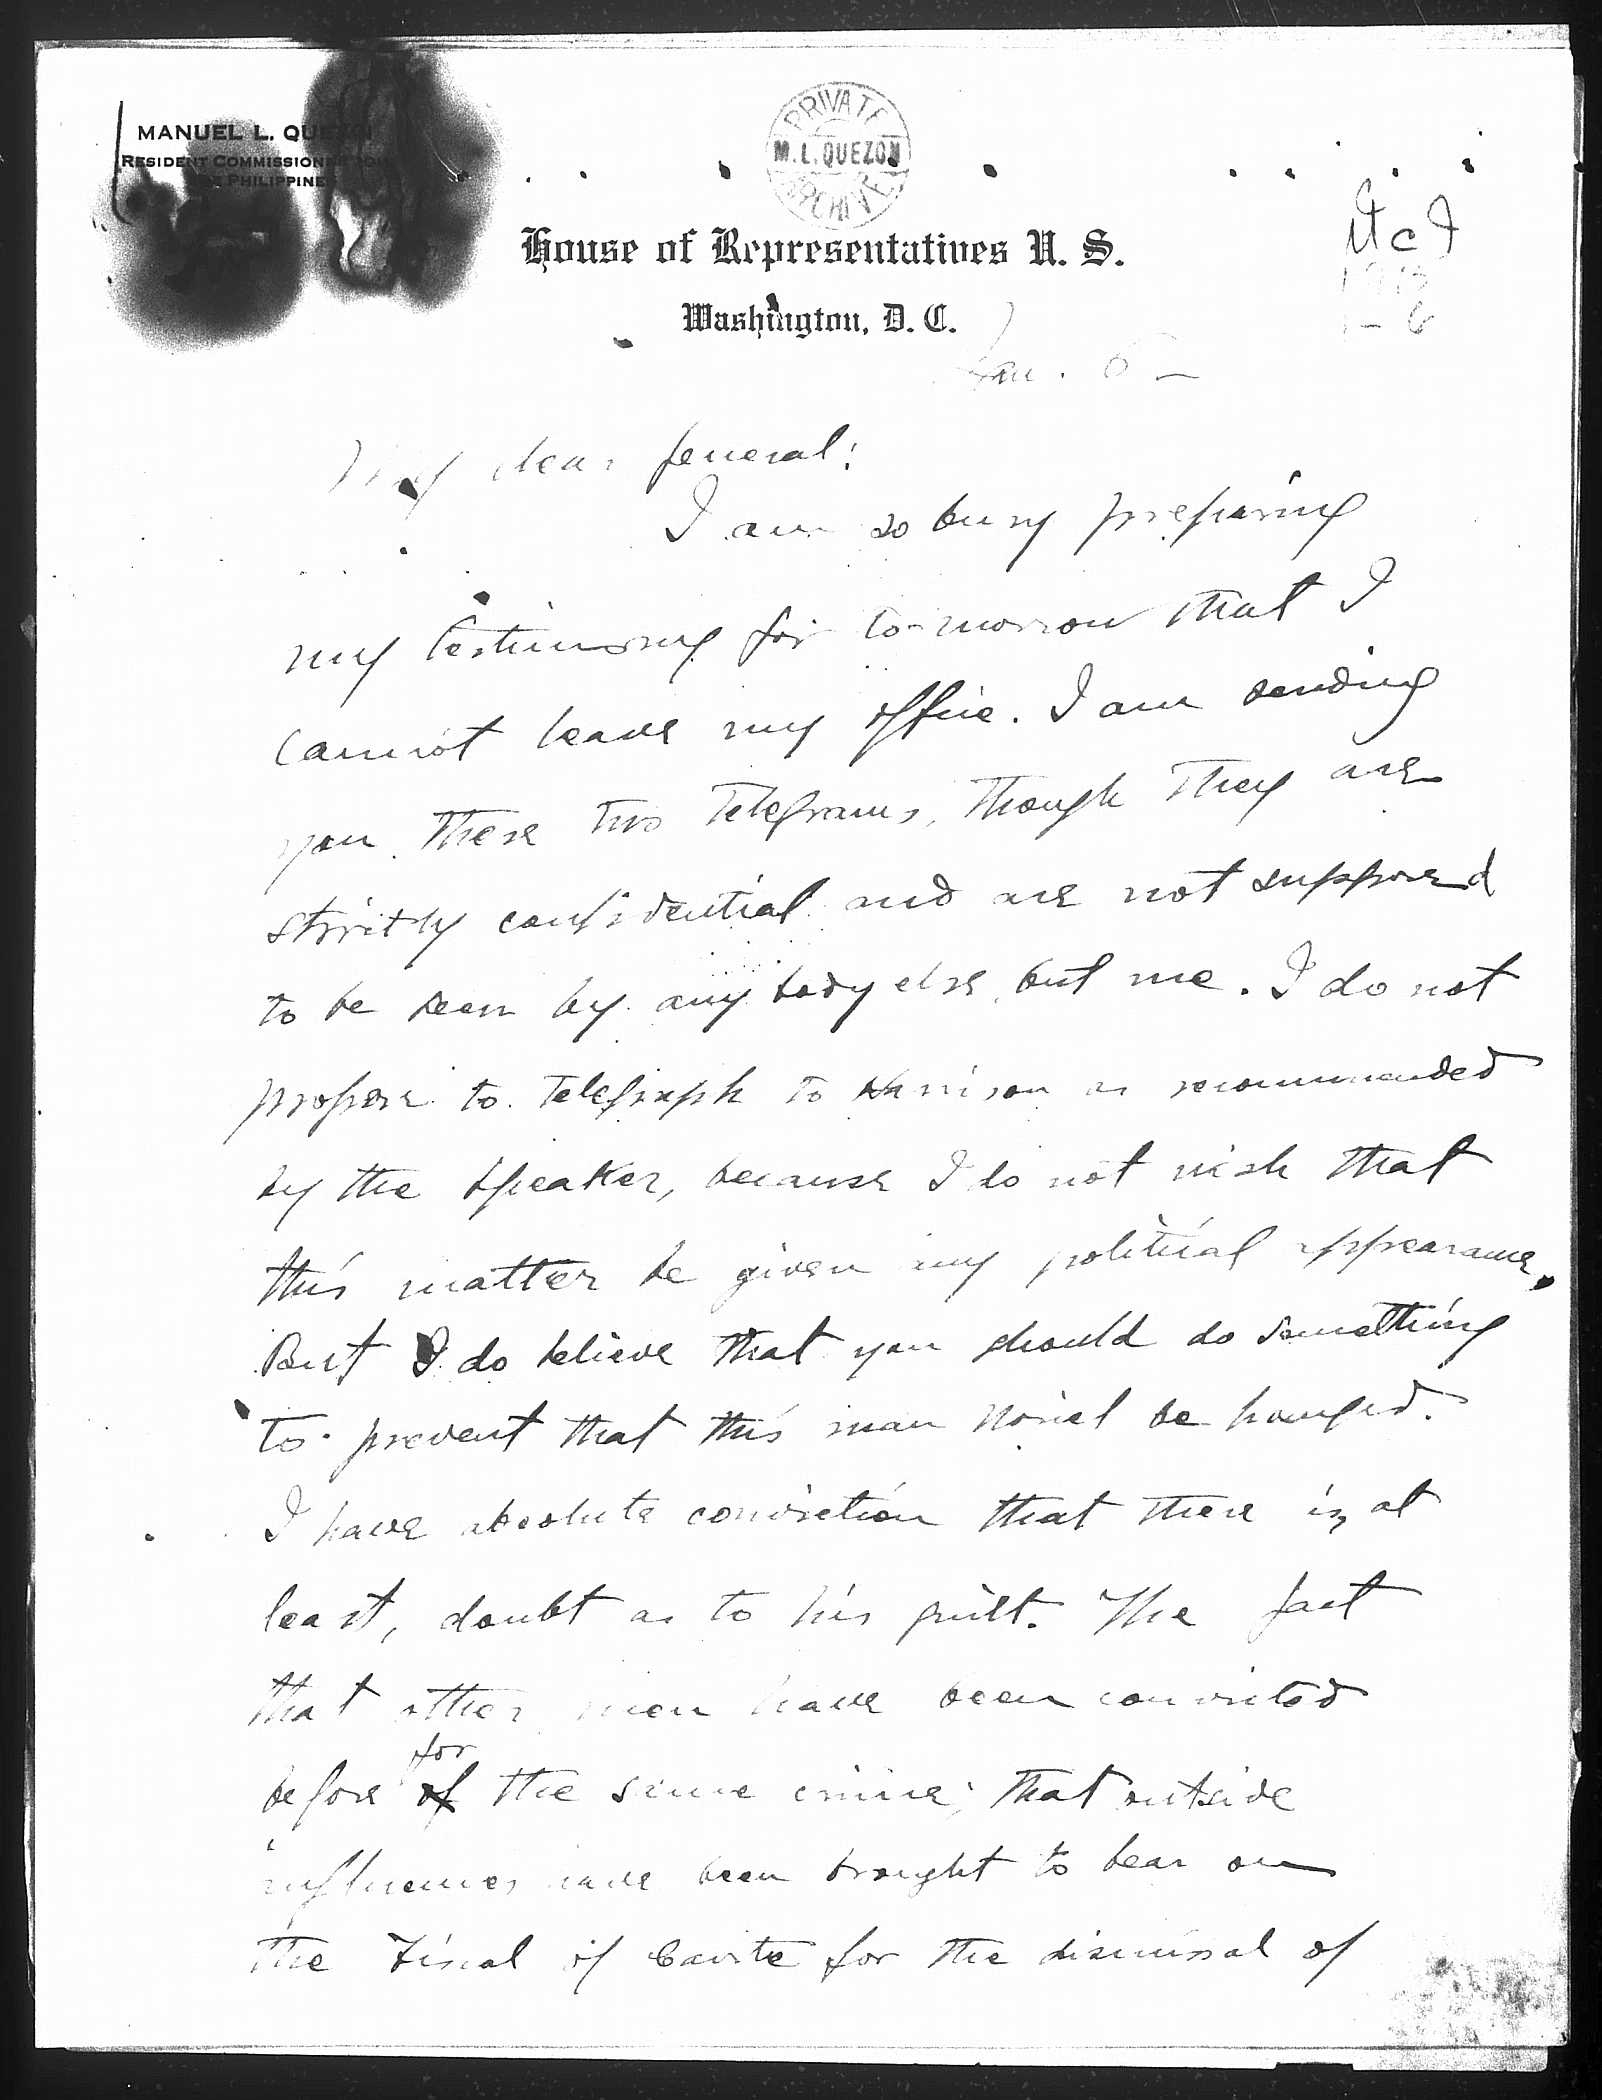 MANUEL L. QUEZON
RESIDENT COMMISSIONER
PHILIPPINES
PRIVATE
M. L. QUEZON
ARCHIVE
House of Representatives U. S.
Washington, D. C.
Jan. 6 –
My dear General:
I am so busy preparing
my testimony for to-morrow that I
cannot leave my office. I am sending
you these two telegrams, though they are
strictly confidential and are not supposed
to be seen by any body else but me. I do not
propose to telegraph to Harrison as recommended
by the Speaker, because I do not wish that
this matter be given any political appearance.
But I do believe that you should do something
to prevent that this man Noriel be hanged.
I have absolute conviction that there is, at
least, doubt as to his guilt. The fact
that other men have been convicted
before for the same crime; that outside
influences have been brought to bear on
the Fiscal of Cavite for the dismissal of